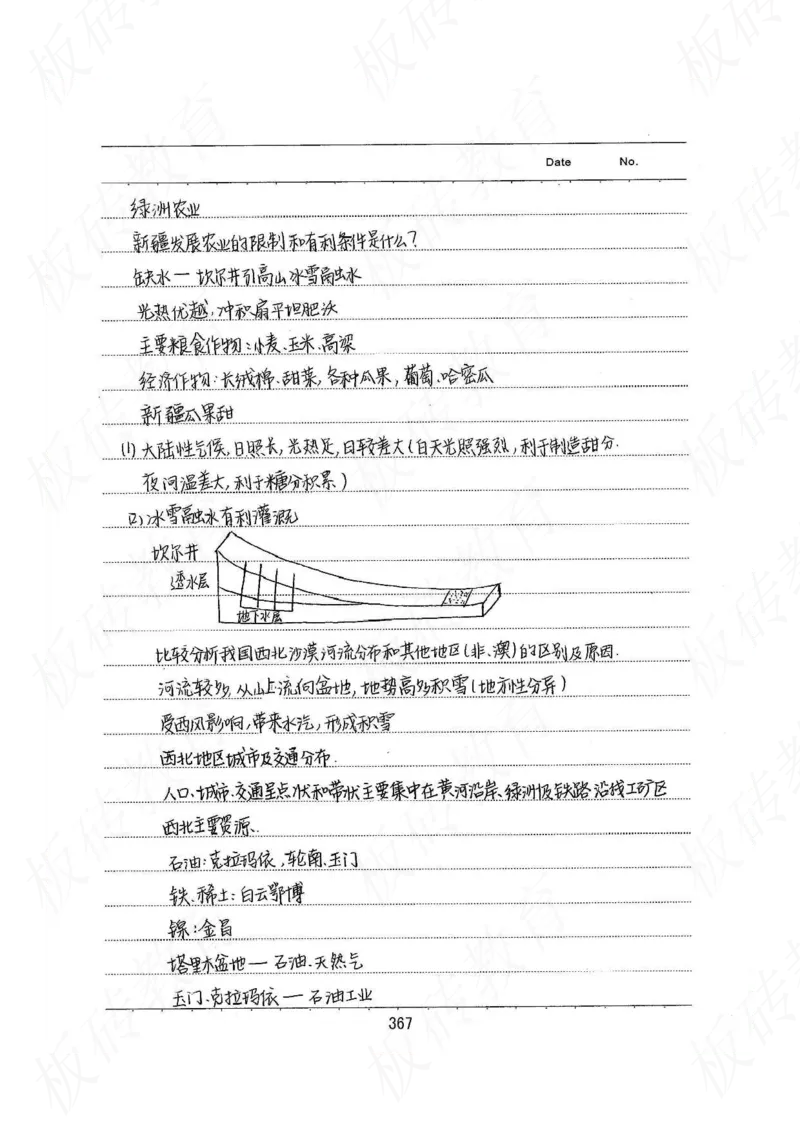 Date No.
绿洲农业
新疆发展农业的限制和有利条件是什么?
缺水一坎尔井引高山冰雪融水
光热优越,冲积扇平坦肥沃
主要粮食作物:小麦、玉米、高梁
经济作物:长绒棉、甜菜,各种瓜果,葡萄、哈密瓜
新疆瓜果甜
(1)大陆性气候,日照长,光热足,日较差大(白天光照强烈,利于制造甜分.
夜间温差大,利于糖分积累)
(2)冰雪融水有利灌溉
坎尔井
透水层
地下水层
比较分析我国西北沙漠河流分布和其他地区(非、澳)的区别及原因.
河流较多,从山上流向盆地,地势高多积雪(地方性分异)
受西风影响,带来水汽,形成积雪
西北地区城市及交通分布.
人口、城市、交通呈点状和带状主要集中在黄河沿岸、绿洲及铁路沿线工矿区
西北主要资源.
石油:克拉玛依,轮南、玉门
铁、稀土:白云鄂博
镍:金昌
塔里木盆地一石油、天然气
玉门、克拉玛依一石油工业
367
板砖教育